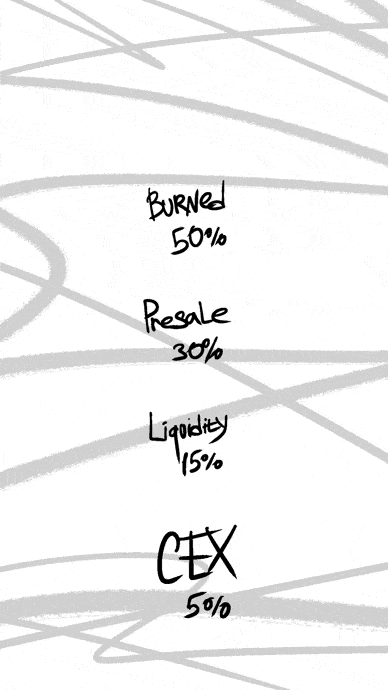 Burned
50%
Presale
30%
Liquidity
15%
CEX
5%